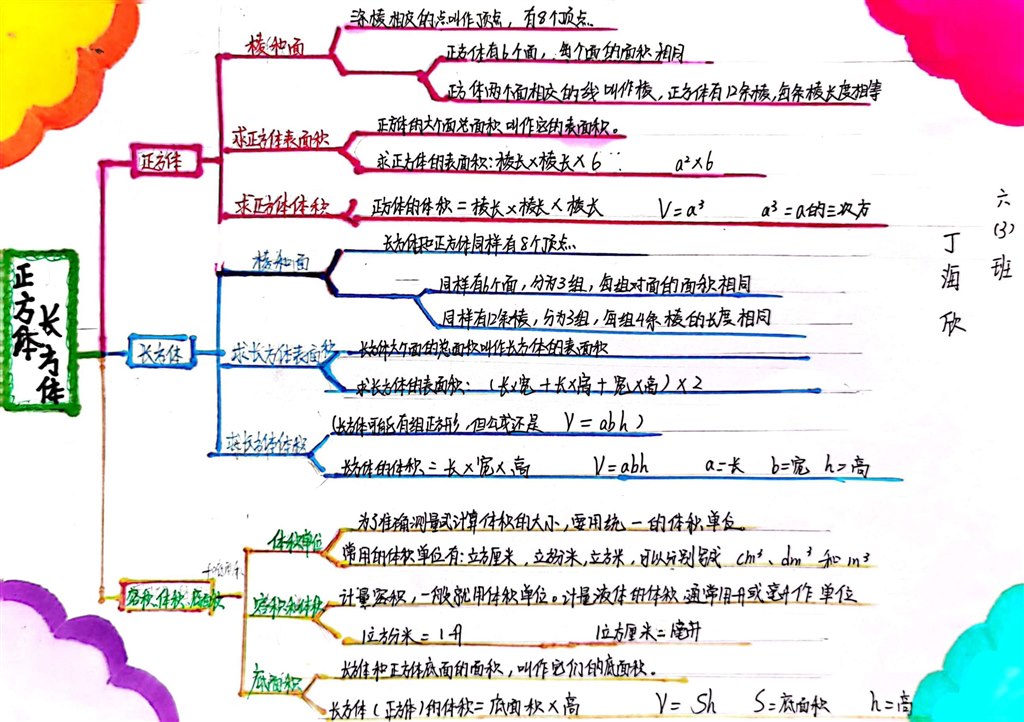 正方体
长方体
正方体
棱和面
条棱相交的点叫作顶点，有8个顶点.
正方体有6个面，每个面的面积相同
正方体两个面相交的线叫作棱，正方体有12条棱，每条棱长度相等
求正方体表面积
正方体的六个面总面积叫作它的表面积。
求正方体的表面积：棱长×棱长×6 a²×6
求正方体体积
正方体的体积＝棱长×棱长×棱长 V＝a³ a³＝a的三次方
六(3)班
丁海欣
长方体
棱和面
长方体和正方体同样有8个顶点.
同样有6个面，分为3组，每组对面的面积相同
同样有12条棱，分为3组，每组4条棱的长度相同
求长方体表面积
长方体六个面的总面积叫作长方体的表面积
求长方体的表面积：（长×宽＋长×高＋宽×高）×2
求长方体体积
(长方体可能有组正方形，但公式还是 V＝abh）
长方体的体积＝长×宽×高 V＝abh a＝长 b＝宽 h＝高
容积、体积、底面积
体积单位
为了准确测量或计算体积的大小，要用统一的体积单位。
常用的体积单位有：立方厘米，立方分米，立方米，可以分别写成 cm³、dm³和m³
容积和体积
计量容积，一般就用体积单位。计量液体的体积通常用升或毫升作单位
1立方分米＝1升 1立方厘米＝1毫升
底面积
长方体和正方体底面的面积，叫作它们的底面积。
长方体（正方体）的体积＝底面积×高 V＝Sh S＝底面积 h＝高